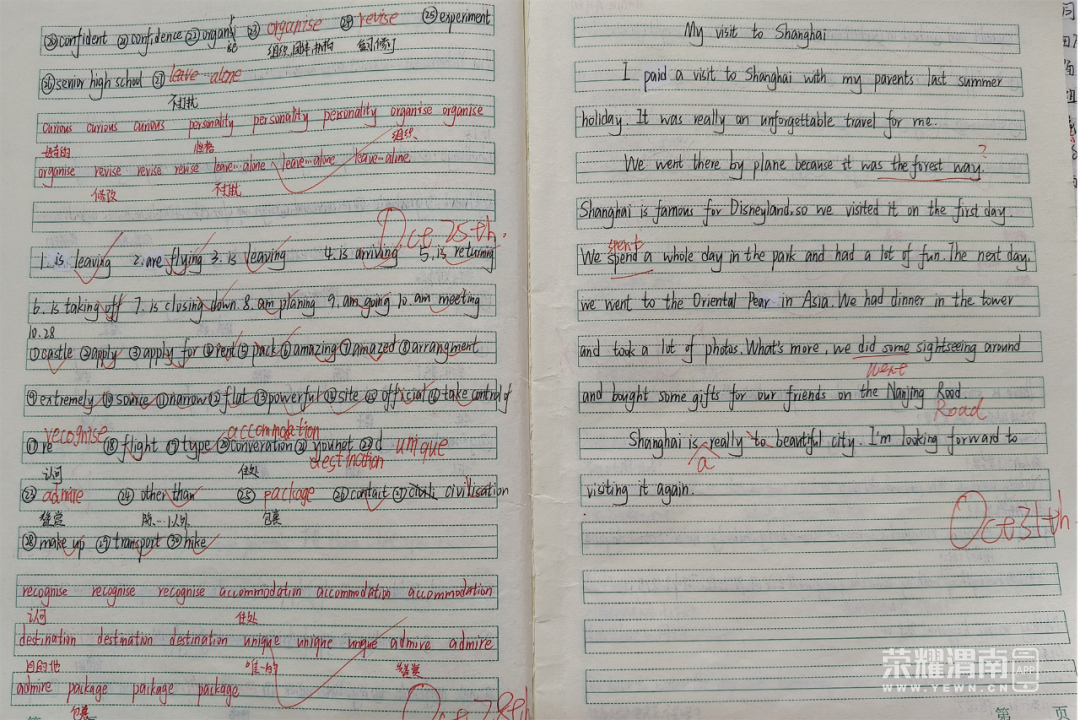 ⑳confident ㉑confidence ㉒organ ㉓ organise ㉔ revise ㉕experiment
组织 修改
㉖senior high school ㉗ leave alone
不打扰
curious curious curious personality personality personality organise organise
好奇的 性格 组织
organise revise revise revise leave…alone leave…alone leave…alone
修改 不打扰
Oct 25th.
1. is leaving 2. are flying 3. is leaving 4. is arriving 5. is returning
6. is taking off 7. is closing down 8. am planing 9. am going 10. am meeting
10.28
①castle ②apply ③apply for ④rent ⑤pack ⑥amazing ⑦amazed ⑧arrangment
⑨extremely ⑩source ⑪narrow ⑫flat ⑬powerful ⑭site ⑮official ⑯take control of
⑰re recognise ⑱flight ⑲type ⑳converation accommodation destination ㉒d unique
认可 住处
㉓ admire ㉔ other than ㉕ package ㉖contact ㉗ civilisation
赞赏 除…以外 包裹
㉘make up ㉙transport ㉚hike
recognise recognise recognise accommodation accommodation accommodation
认可 住处
destination destination destination unique unique unique admire admire
目的地 唯一的 赞赏
admire package package package
包裹
Oct 28th
My visit to Shanghai
I paid a visit to Shanghai with my parents last summer
holiday. It was really an unforgettable travel for me.
We went there by plane because it was the forest way. ?
Shanghai is famous for Disneyland, so we visited it on the first day.
spent
We spend a whole day in the park and had a lot of fun. The next day,
we went to the Oriental Pear in Asia. We had dinner in the tower
and took a lot of photos. What's more, we did some sightseeing around
went
and bought some gifts for our friends on the Nanjing Rood.
Road
Shanghai is really to beautiful city. I'm looking forward to
a
visiting it again.
Oct 31th.
荣耀渭南 APP
WWW.YEWN.CN
第 页